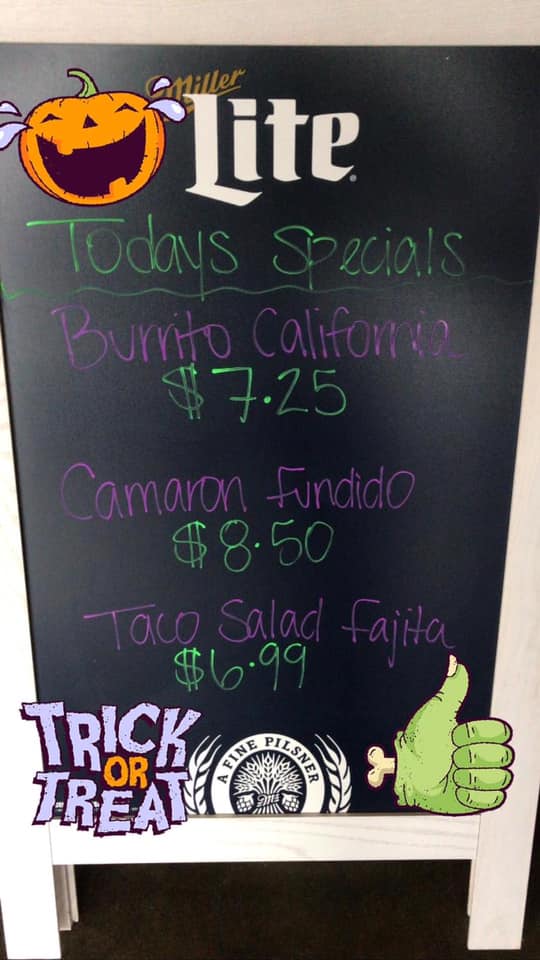 Miller
Lite
Todays Specials
Burrito California
$7.25
Camaron fundido
$8.50
Taco Salad fajita
$6.99
TRICK
OR
TREAT
A FINE PILSNER